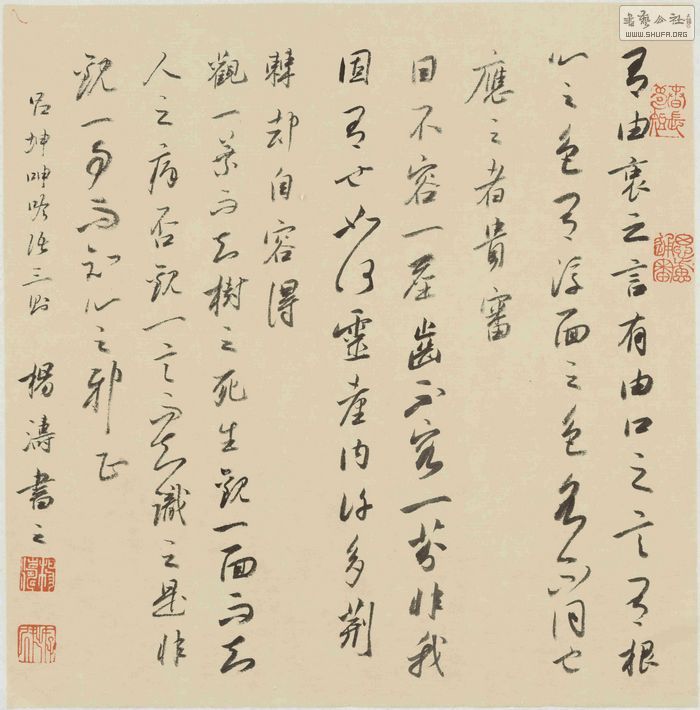 有由衷之言有由口之言有根
心之色有浮面之色各不同也
應之者貴審
目不容一塵齒不容一芥非我
固有也如何靈臺内許多荆
棘却自容得
觀一葉而知樹之死生觀一面而知
人之病否觀一言而知識之是非
觀一事而知心之邪正
呂坤呻吟語三則 楊濤書之
書藝公社
WWW.SHUFA.ORG